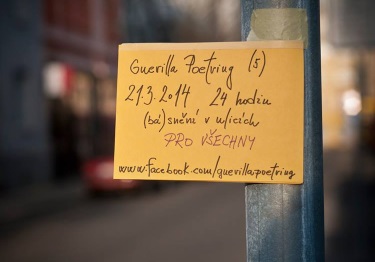 Guerilla Poetring (5)
21.3.2014 24 hodin
(bá)snění v ulicích
PRO VŠECHNY
www.facebook.com/guerillapoetring